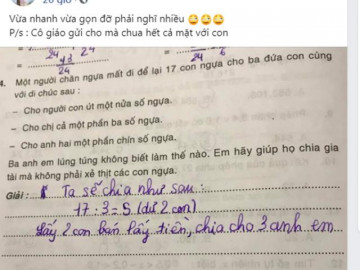 Vừa nhanh vừa gọn đỡ phải nghĩ nhiều
P/s : Cô giáo gửi cho mà chua hết cả mặt với con
24
24
24
4. Một người chăn ngựa mất đi để lại 17 con ngựa cho ba đứa con cùng
với di chúc sau :
– Cho người con út một nửa số ngựa.
– Cho chị cả một phần ba số ngựa.
– Cho anh hai một phần chín số ngựa.
Ba anh em lúng túng không biết làm thế nào. Em hãy giúp họ chia gia
tài mà không phải xẻ thịt các con ngựa.
Giải : Ta sẽ chia như sau :
17 : 3 = 5 (dư 2 con)
Lấy 2 con bán lấy tiền, chia cho 3 anh em